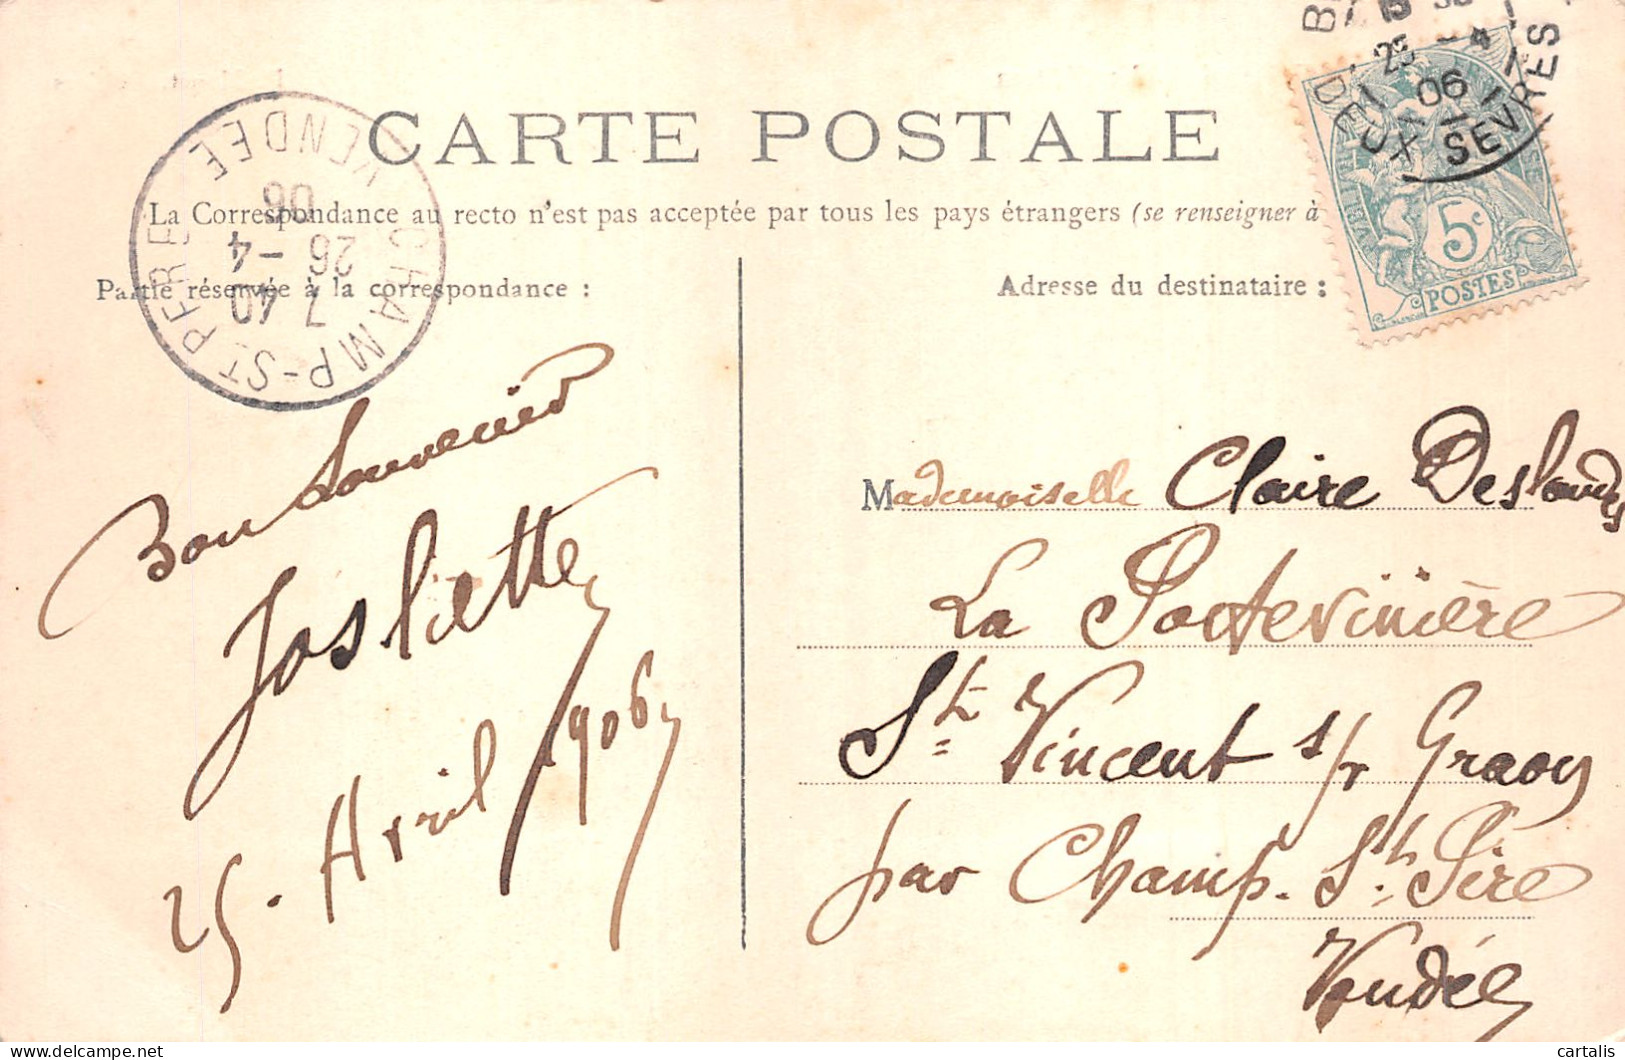 CARTE POSTALE
La Correspondance au recto n'est pas acceptée par tous les pays étrangers (se renseigner à
Partie réservée à la correspondance :
Adresse du destinataire :
CHAMP-ST PERE VENDÉE
7 40
26 - 4
06
25 - 4
06
DEUX SEVRES
5c
POSTES
Bon Souvenir
Josliette
25. Avril 1906
Mademoiselle Claire Deslandes
La Poitevinière
St Vincent s/r Graon
par Champ. St. Père
Vendée
cartalis